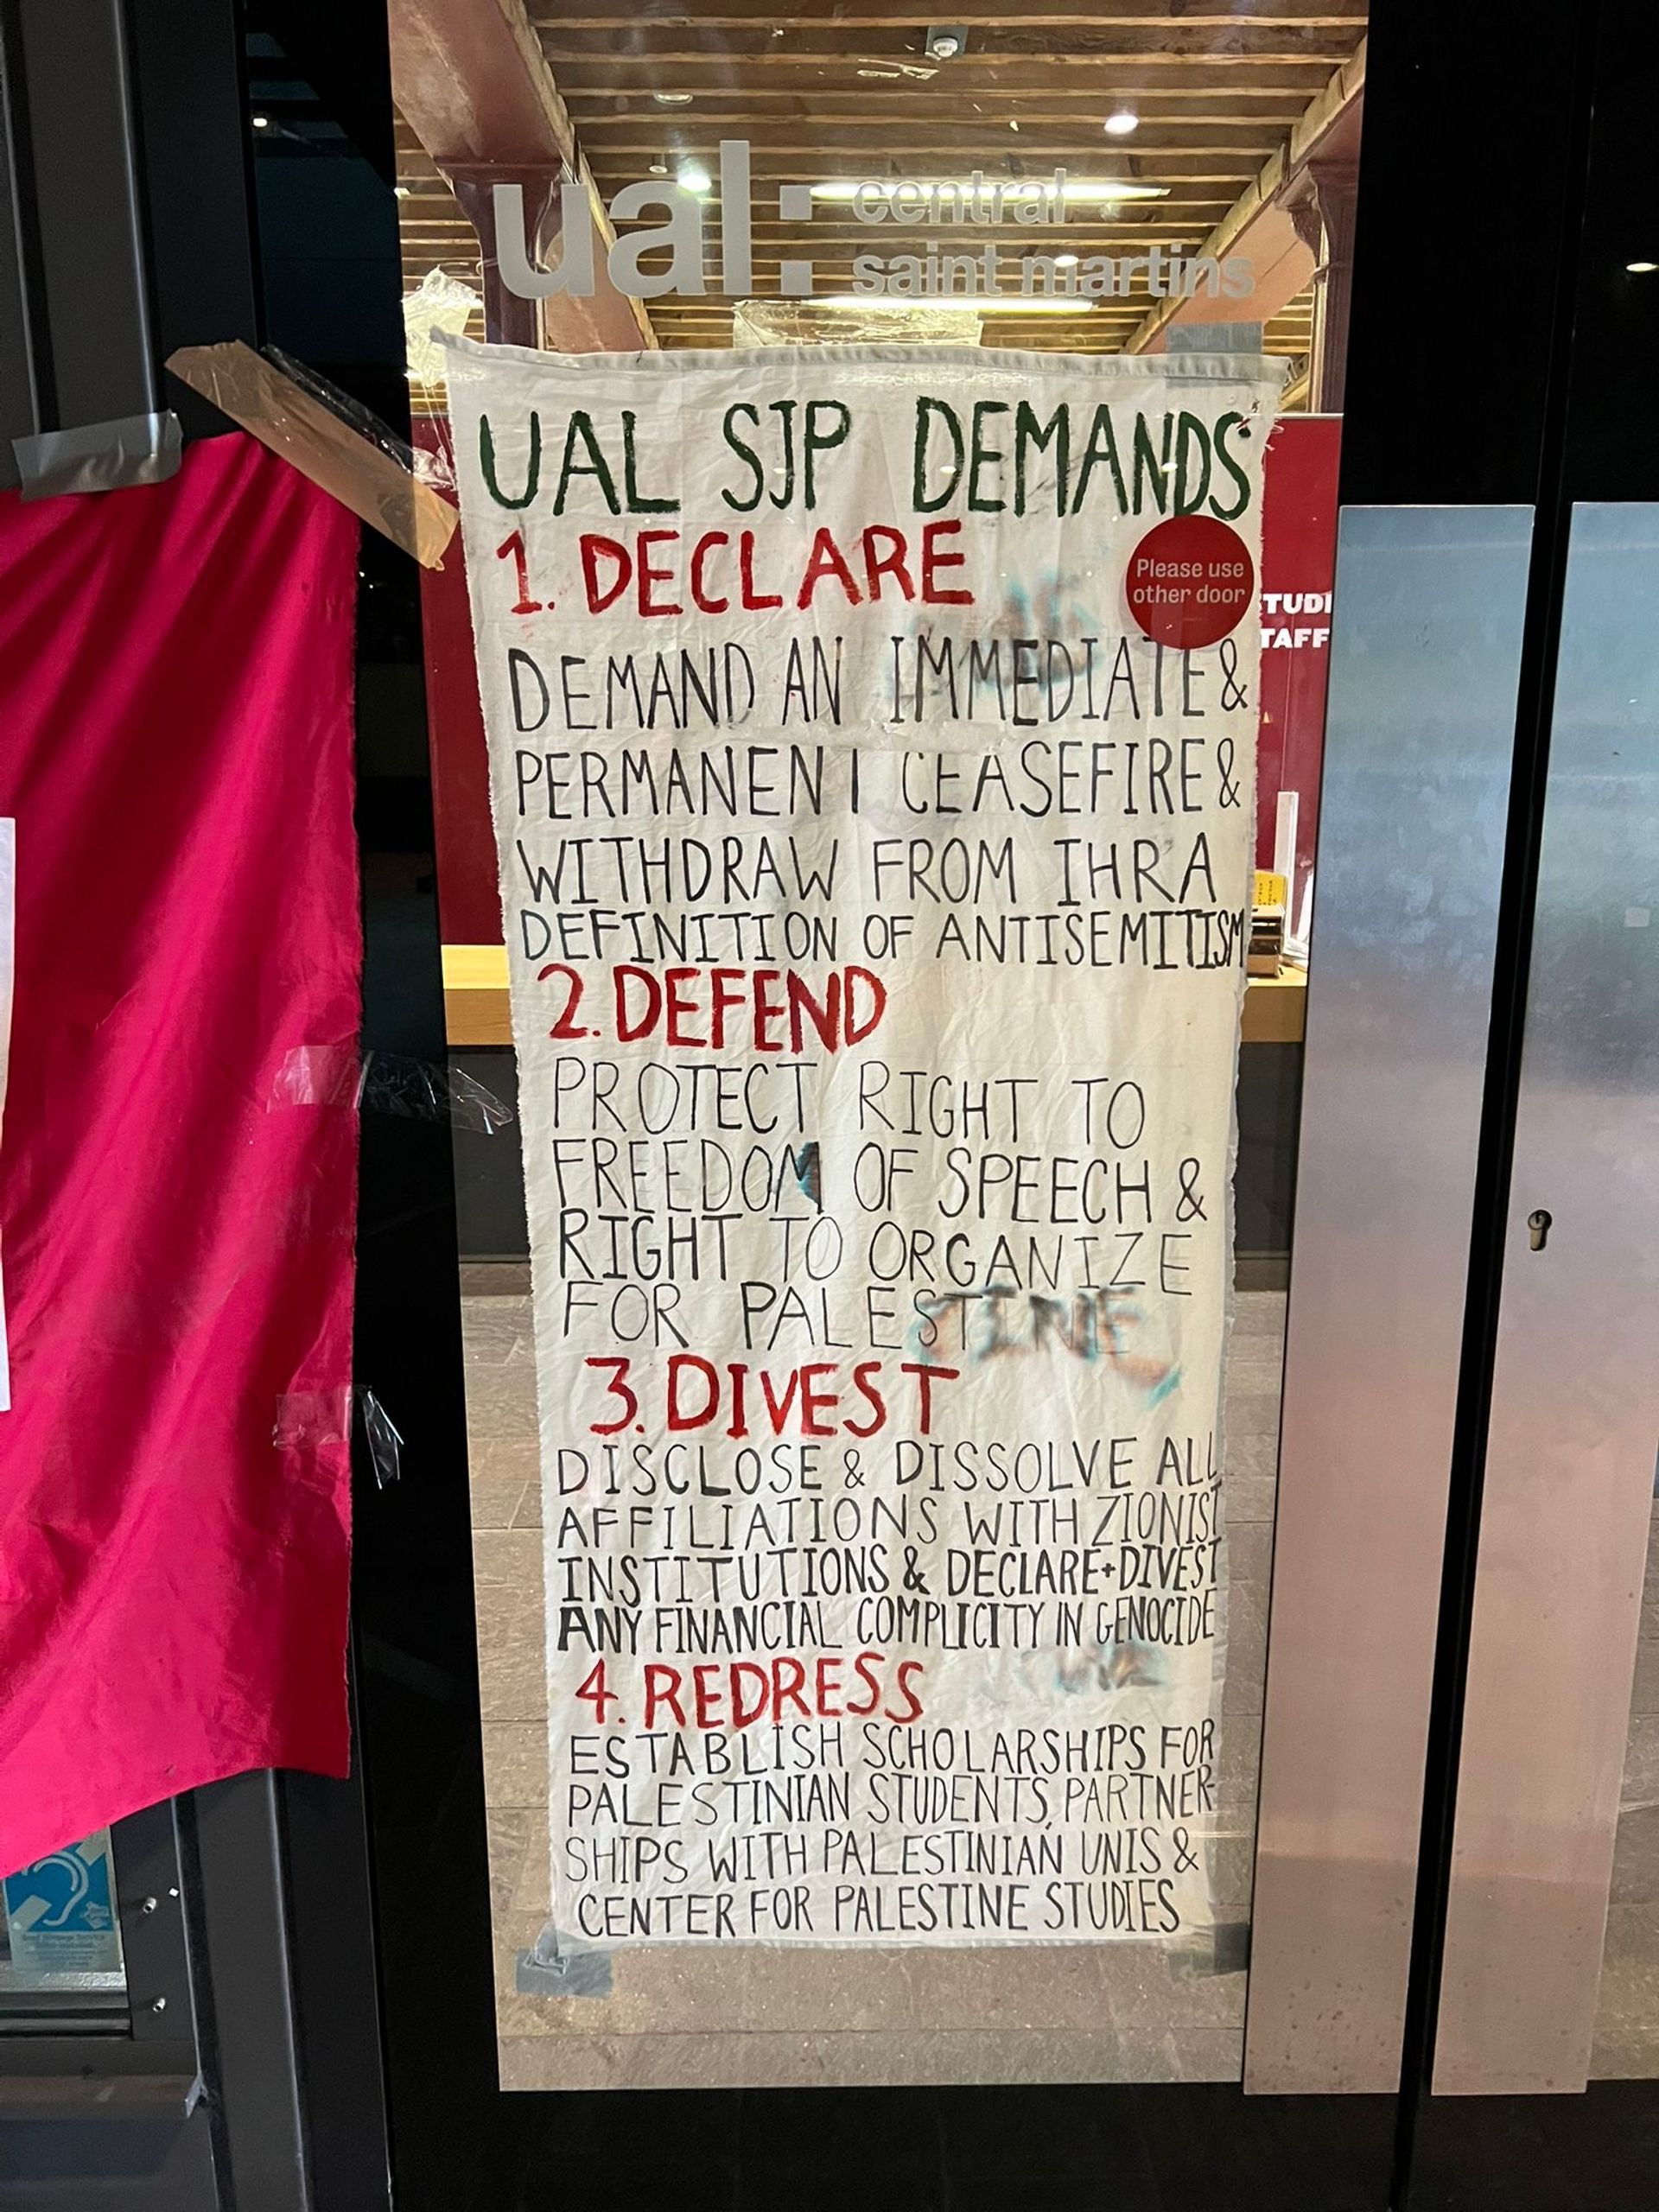 ual: central
saint martins
UAL SJP DEMANDS
1. DECLARE
Please use
other door
TUDI
TAFF
DEMAND AN IMMEDIATE &
PERMANENT CEASEFIRE &
WITHDRAW FROM IHRA
DEFINITION OF ANTISEMITISM
2. DEFEND
PROTECT RIGHT TO
FREEDOM OF SPEECH &
RIGHT TO ORGANIZE
FOR PALESTINE
3. DIVEST
DISCLOSE & DISSOLVE ALL
AFFILIATIONS WITH ZIONIST
INSTITUTIONS & DECLARE+DIVEST
ANY FINANCIAL COMPLICITY IN GENOCIDE
4. REDRESS
ESTABLISH SCHOLARSHIPS FOR
PALESTINIAN STUDENTS, PARTNER-
SHIPS WITH PALESTINIAN UNIS &
CENTER FOR PALESTINE STUDIES